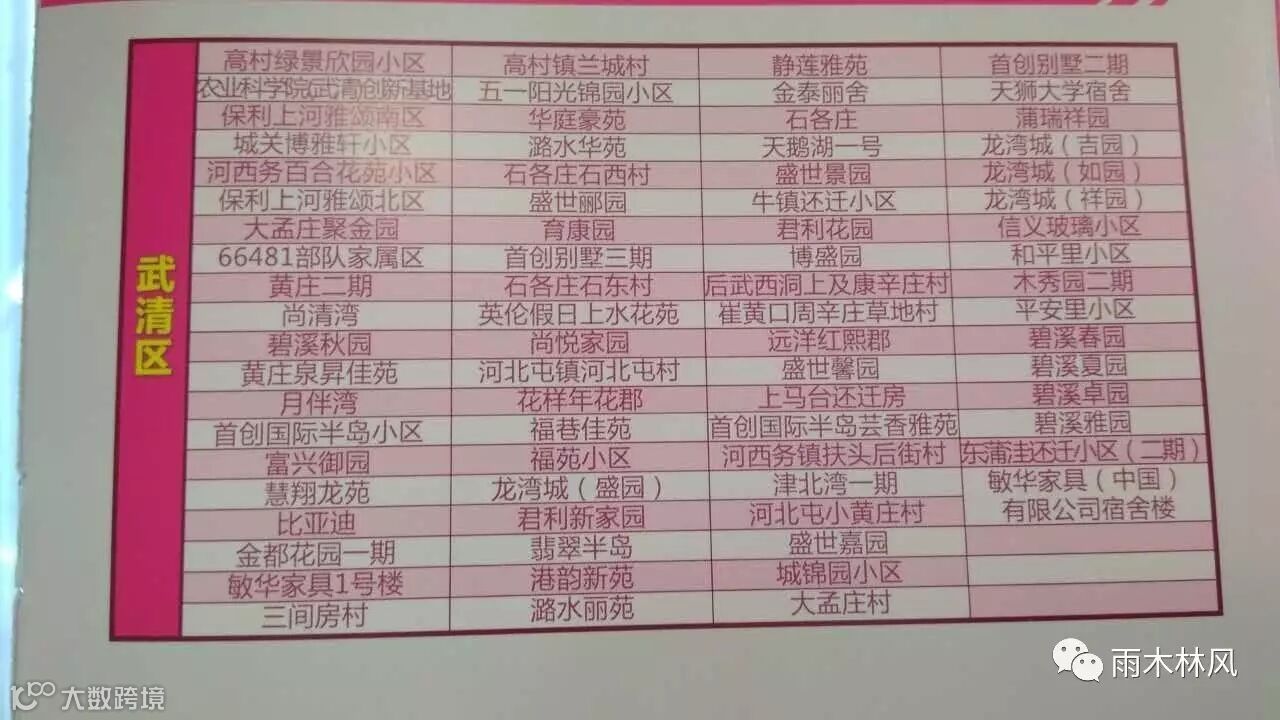 武清区
高村绿景欣园小区 高村镇兰城村 静莲雅苑 首创别墅二期
农业科学院(武清)创新基地 五一阳光锦园小区 金泰丽舍 天狮大学宿舍
保利上河雅颂南区 华庭豪苑 石各庄 蒲瑞祥园
城关博雅轩小区 潞水华苑 天鹅湖一号 龙湾城（吉园）
河西务百合花苑小区 石各庄石西村 盛世景园 龙湾城（如园）
保利上河雅颂北区 盛世郦园 牛镇还迁小区 龙湾城（祥园）
大孟庄聚金园 育康园 君利花园 信义玻璃小区
66481部队家属区 首创别墅三期 博盛园 和平里小区
黄庄二期 石各庄石东村 后武西洞上及康辛庄村 木秀园二期
尚清湾 英伦假日上水花苑 崔黄口周辛庄草地村 平安里小区
碧溪秋园 尚悦家园 远洋红熙郡 碧溪春园
黄庄泉昇佳苑 河北屯镇河北屯村 盛世馨园 碧溪夏园
月伴湾 花样年花郡 上马台还迁房 碧溪卓园
首创国际半岛小区 福巷佳苑 首创国际半岛芸香雅苑 碧溪雅园
富兴御园 福苑小区 河西务镇扶头后街村 东蒲洼还迁小区（二期）
慧翔龙苑 龙湾城（盛园） 津北湾一期 敏华家具（中国）
比亚迪 君利新家园 河北屯小黄庄村 有限公司宿舍楼
金都花园一期 翡翠半岛 盛世嘉园
敏华家具1号楼 港韵新苑 城锦园小区
三间房村 潞水丽苑 大孟庄村
雨木林风
大数跨境